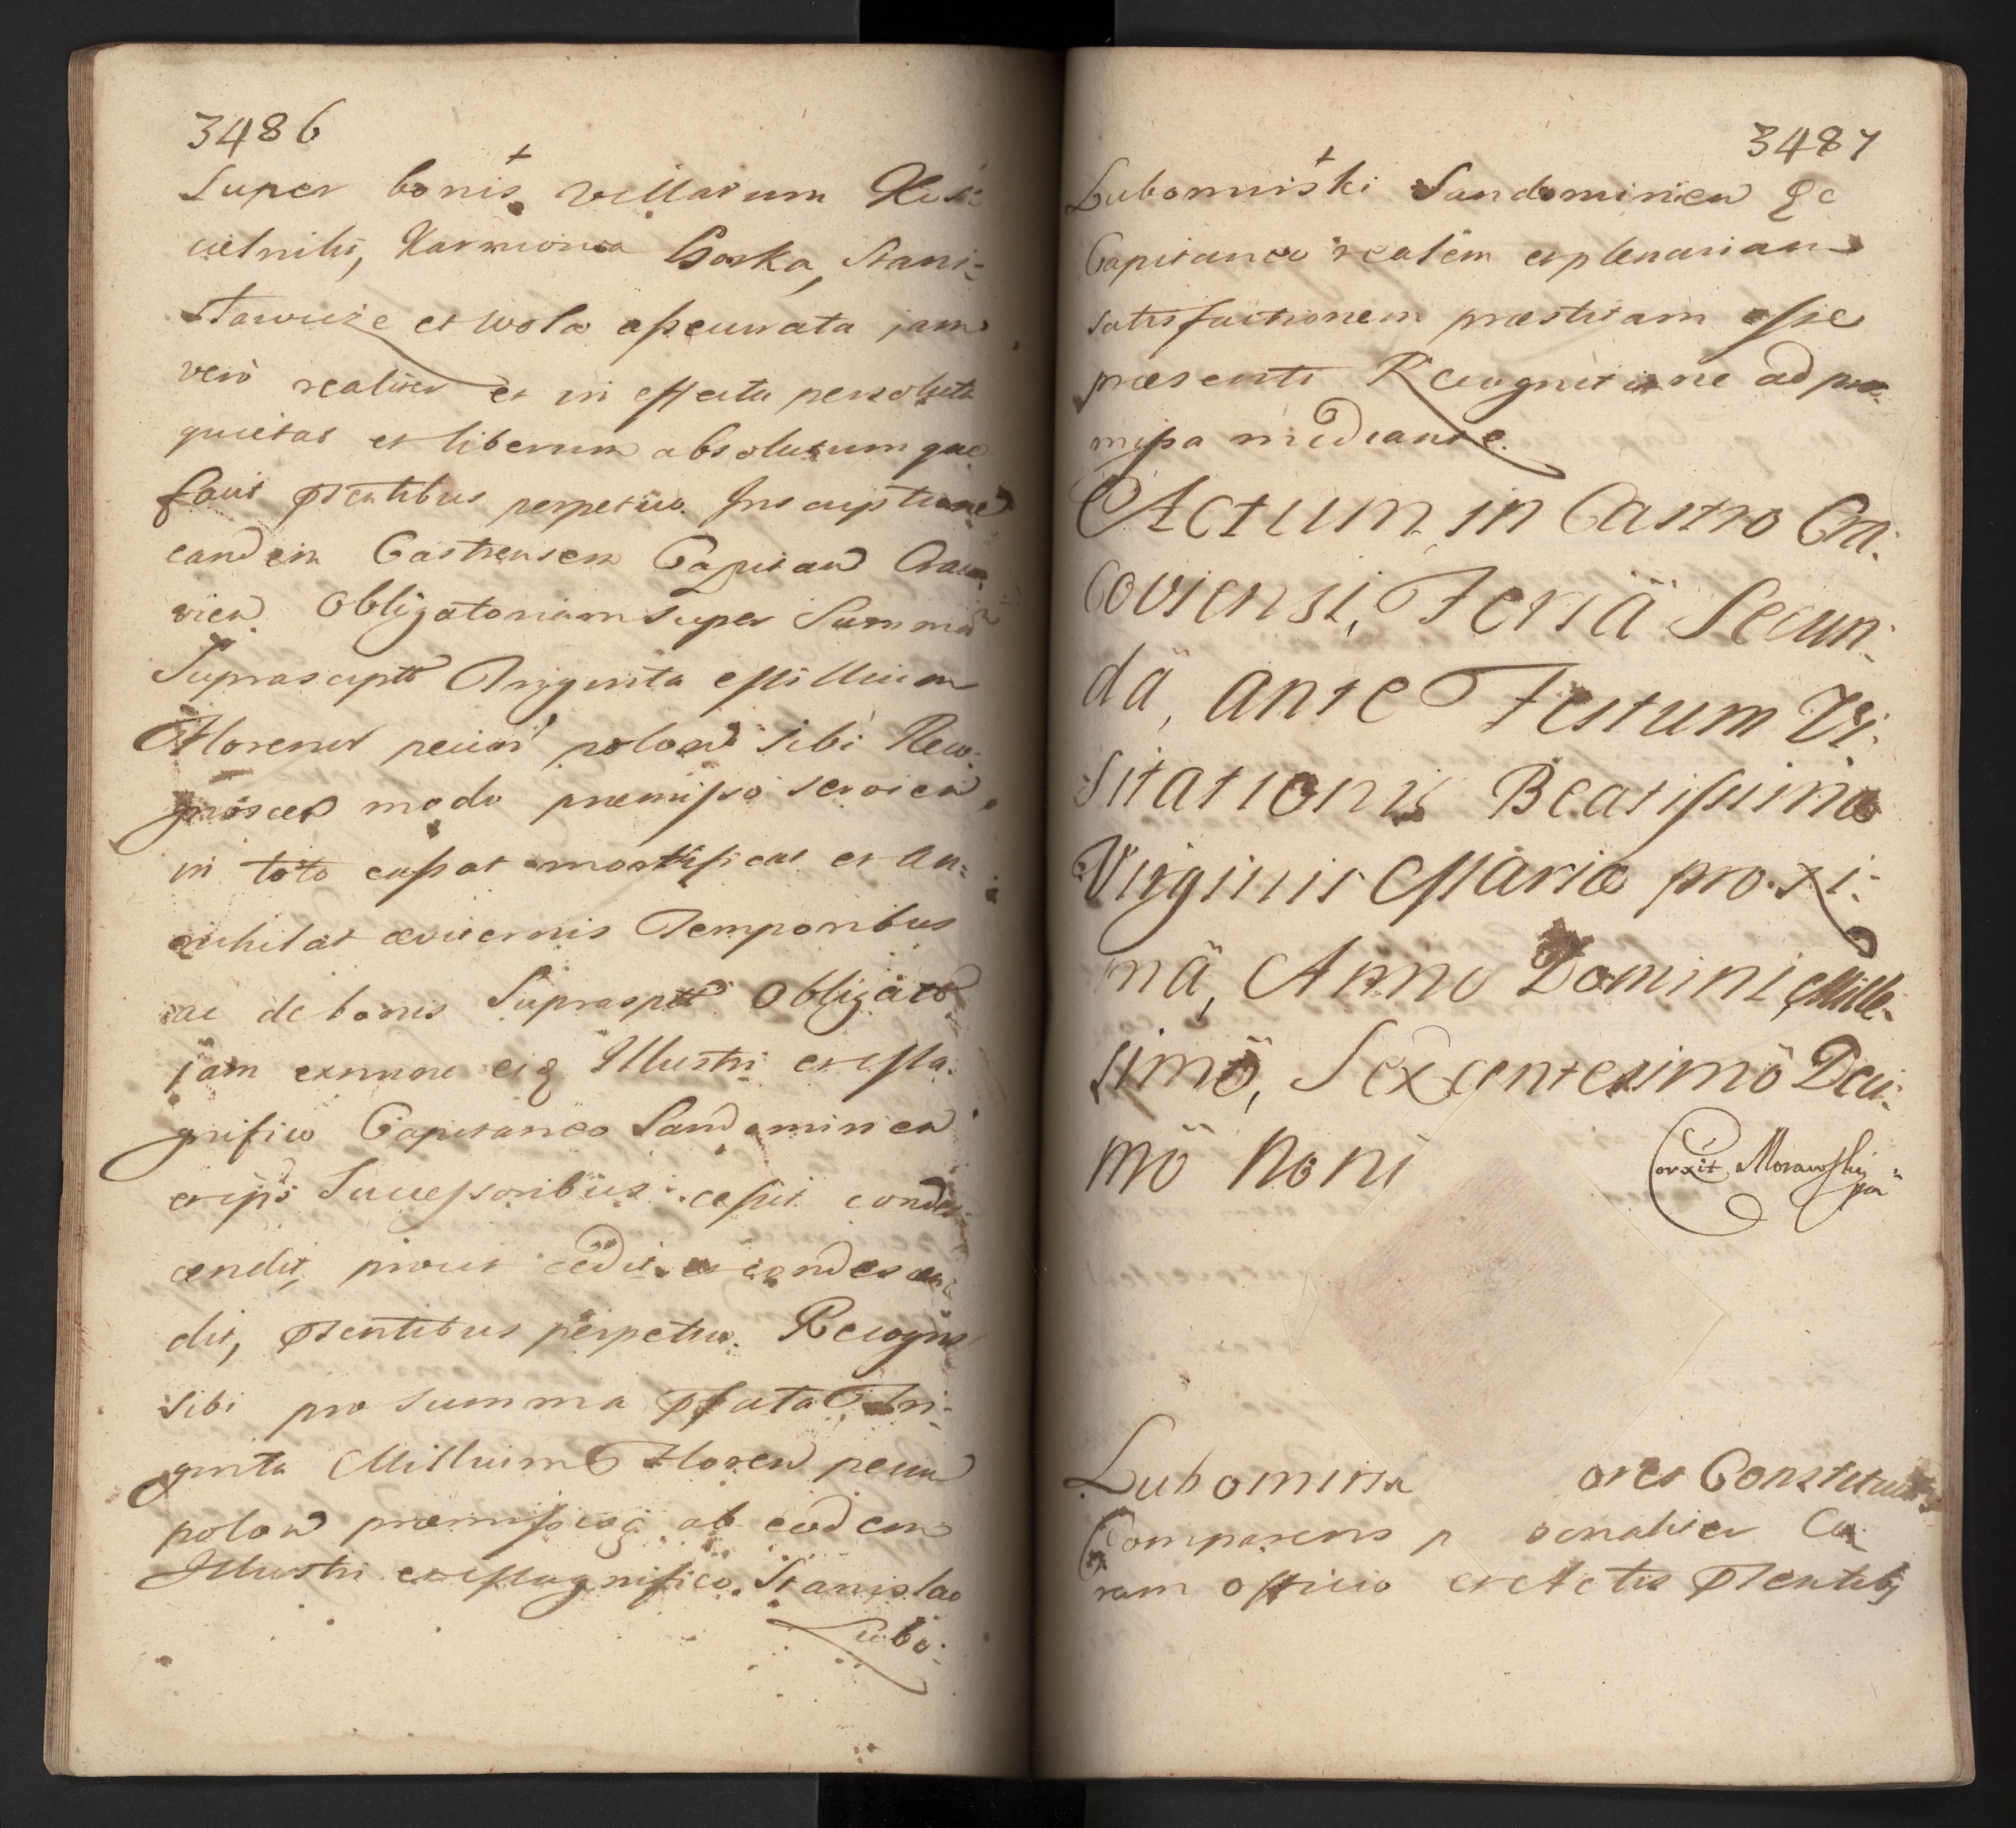 3486
Super bonis villarum
cielniki, Karniowa Gorka, Stani-
stawicze et Wola assecurata jam
vero realiter et in effectu persoluta
quietat et liberum absolutumque
facit pntentibus perpetuo. Inscriptione
eandem Castrensem Capitan Craco-
vien. Obligatoriam super Summa
Suprascripta Triginta Millium
Florenor pecun polon sibi Reco-
gnoscen modo praemisso servien,
in toto cassat mortificat et an-
nihilat aeviternis Temporibus
ac de bonis Suprasptt Obligatt
jam exnunc eiq Illustri et Ma-
gnifico Capitaneo Sandomirien
et ipsi Successoribus cessit condes-
cendit, prout cedit et condescen-
dit, pntentibus perpetuo. Recogn
sibi pro summa pfata Tri-
ginta Millium Floren pecun
polon praemissisq ab eodem
Illustri et Magnifico Stanislao
Lubo-
3487
Lubomirski Sandomirien &c
Capitaneo realem et plenariam
satisfactionem praestitam esse
praesenti Recognitione ad prae-
missa mediante.
Actum in Castro Cra-
coviensi, Feriä Secun-
dä, ante Festum Vi-
sitationis Beatissimae
Virginis Mariae proxi-
mä, Anno Domini Mille-
simö, Sexcentesimö Deci-
mö noni
Corxit Morawskij
Lubomirs ores Constituit
Comparens p sonaliter Co-
ram officio et Actis pntentibq